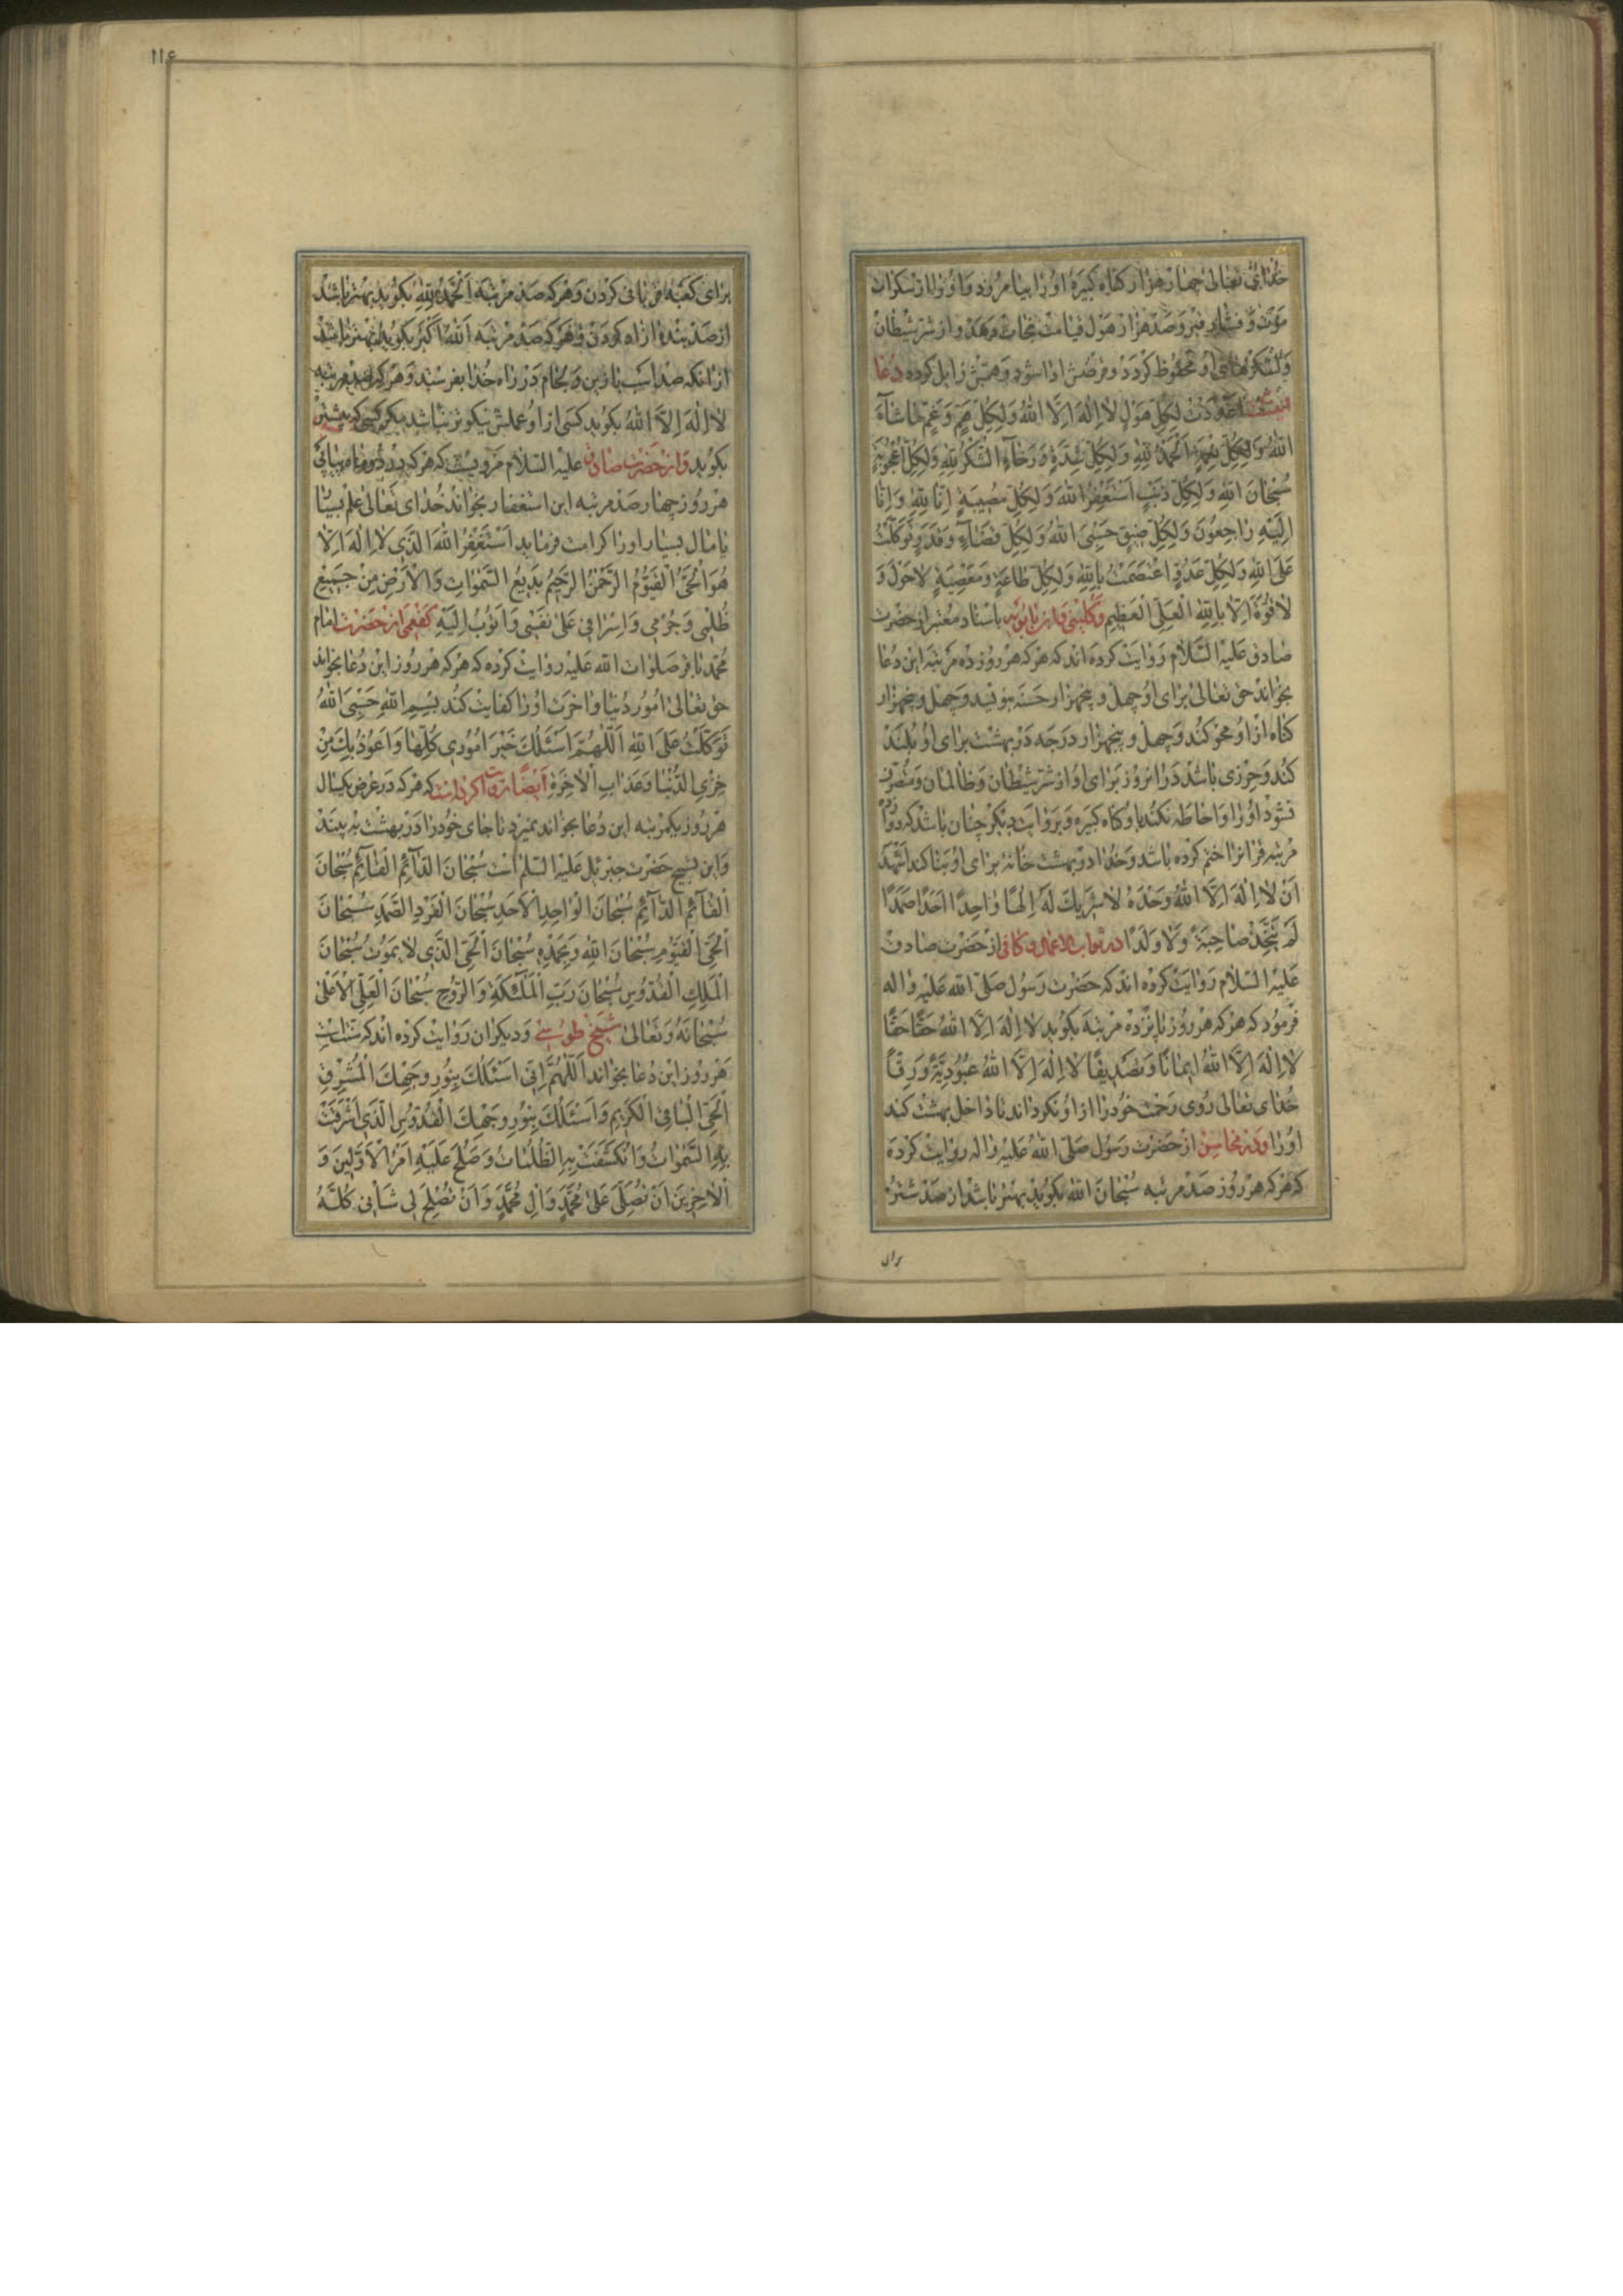 خدای تعالی چهار هزار گناه کبیره او را بیامرزد و او را از سکرات
موت و فشار قبر و صد هزار هول قیامت نجات دهد و از شر شیطان
و لشکرهای او محفوظ گردد و قرضش ادا شود و همّش زایل گردد دعا
اَعْدَدْتُ لِكُلِّ هَوْلٍ لا اِلٰهَ اِلَّا اللهُ وَلِكُلِّ هَمٍّ وَغَمٍّ مَا شَآءَ
اللهُ وَلِكُلِّ نِعْمَةٍ اَلْحَمْدُ لِلّٰهِ وَلِكُلِّ شِدَّةٍ وَرَخَآءٍ الشُّكْرُ لِلّٰهِ وَلِكُلِّ اُعْجُوبَةٍ
سُبْحَانَ اللهِ وَلِكُلِّ ذَنْبٍ اَسْتَغْفِرُ اللهَ وَلِكُلِّ مُصِيبَةٍ اِنَّا لِلّٰهِ وَاِنَّا
اِلَيْهِ رَاجِعُونَ وَلِكُلِّ ضِيقٍ حَسْبِيَ اللهُ وَلِكُلِّ قَضَآءٍ وَقَدَرٍ تَوَكَّلْتُ
عَلَى اللهِ وَلِكُلِّ عَدُوٍّ اعْتَصَمْتُ بِاللهِ وَلِكُلِّ طَاعَةٍ وَمَعْصِيَةٍ لا حَوْلَ وَ
لا قُوَّةَ اِلَّا بِاللهِ الْعَلِيِّ الْعَظِيمِ و کلینی و ابن بابویه باسناد معتبر از حضرت
صادق علیه السلام روایت کرده اند که هر که هر روز ده مرتبه این دعا
بخواند حق تعالی برای او چهل و پنجهزار حسنه بنویسد و چهل و پنجهزار
گناه از او محو کند و چهل و پنجهزار درجه در بهشت برای او بلند
کند و حرزی باشد در انروز برای او از شر شیطان و ظالمان و
نشود او را و احاطه نکند باو گناه کبیره و بروایت دیگر چنان باشد که دوازده
مرتبه قرانرا ختم کرده باشد و خدا در بهشت خانۀ برای او بنا کند اَشْهَدُ
اَنْ لا اِلٰهَ اِلَّا اللهُ وَحْدَهُ لا شَرِيكَ لَهُ اِلٰهًا وَاحِدًا اَحَدًا صَمَدًا
لَمْ يَتَّخِذْ صَاحِبَةً وَلا وَلَدًا در ثواب الاعمال و کافی از حضرت صادق
علیه السلام روایت کرده اند که حضرت رسول صلی الله علیه واله
فرمود که هر که هر روز پانزده مرتبه بگوید لا اِلٰهَ اِلَّا اللهُ حَقًّا حَقًّا
لا اِلٰهَ اِلَّا اللهُ اِيمَانًا وَتَصْدِيقًا لا اِلٰهَ اِلَّا اللهُ عُبُودِيَّةً وَرِقًّا
خدای تعالی روی رحمت خود را از او نگرداند تا داخل بهشت کند
او را و در محاسن از حضرت رسول صلی الله علیه واله روایت کرده
که هر که هر روز صد مرتبه سُبْحَانَ اللهِ بگوید بهتر باشد از صد شتر که
برای
۱۱۶
برای کعبه قربانی کردن و هر که صد مرتبه اَلْحَمْدُ لِلّٰهِ بگوید بهتر باشد
از صد بنده ازاد کردن و هر که صد مرتبه اَللهُ اَكْبَرُ بگوید بهتر باشد
از انکه صد اسب با زین و لجام در راه خدا بفرستد و هر که صد مرتبه
لا اِلٰهَ اِلَّا اللهُ بگوید کسی از او عملش نیکوتر نباشد مگر کسی که بیشتر
بگوید و از حضرت صادق علیه السلام مرویست که هر که در دو ماه پیاپی
هر روز چهار صد مرتبه این استغفار بخواند خدای تعالی علم بسیار
یا مال بسیار او را کرامت فرماید اَسْتَغْفِرُ اللهَ الَّذِي لا اِلٰهَ اِلَّا
هُوَ الْحَيُّ الْقَيُّومُ الرَّحْمٰنُ الرَّحِيمُ بَدِيعُ السَّمٰوَاتِ وَالْاَرْضِ مِنْ جَمِيعِ
ظُلْمِي وَجُرْمِي وَاِسْرَافِي عَلٰى نَفْسِي وَاَتُوبُ اِلَيْهِ کفعمی از حضرت امام
محمد باقر صلوات الله علیه روایت کرده که هر که هر روز این دعا بخواند
حق تعالی امور دنیا و اخرت او را کفایت کند بِسْمِ اللهِ حَسْبِيَ اللهُ
تَوَكَّلْتُ عَلَى اللهِ اَللّٰهُمَّ اَسْئَلُكَ خَيْرَ اُمُورِي كُلِّهَا وَاَعُوذُ بِكَ مِنْ
خِزْيِ الدُّنْيَا وَعَذَابِ الْاٰخِرَةِ ایضا روایت کرده است که هر که در عرض یکسال
هر روز یکمرتبه این دعا بخواند نمیرد تا جای خود را در بهشت به بیند
و این تسبیح حضرت جبرئیل علیه السلم است سُبْحَانَ الدَّآئِمِ الْقَآئِمِ سُبْحَانَ
الْقَآئِمِ الدَّآئِمِ سُبْحَانَ الْوَاحِدِ الْاَحَدِ سُبْحَانَ الْفَرْدِ الصَّمَدِ سُبْحَانَ
الْحَيِّ الْقَيُّومِ سُبْحَانَ اللهِ وَبِحَمْدِهِ سُبْحَانَ الْحَيِّ الَّذِي لا يَمُوتُ سُبْحَانَ
الْمَلِكِ الْقُدُّوسِ سُبْحَانَ رَبِّ الْمَلٰٓئِكَةِ وَالرُّوحِ سُبْحَانَ الْعَلِيِّ الْاَعْلٰى
سُبْحَانَهُ وَتَعَالٰى شیخ طوسی و دیگران روایت کرده اند که سنت است
هر روز این دعا بخواند اَللّٰهُمَّ اِنِّي اَسْئَلُكَ بِنُورِ وَجْهِكَ الْمُشْرِقِ
الْحَيِّ الْبَاقِي الْكَرِيمِ وَاَسْئَلُكَ بِنُورِ وَجْهِكَ الْقُدُّوسِ الَّذِي اَشْرَقَتْ
بِهِ السَّمٰوَاتُ وَانْكَشَفَتْ بِهِ الظُّلُمَاتُ وَصَلُحَ عَلَيْهِ اَمْرُ الْاَوَّلِينَ وَ
الْاٰخِرِينَ اَنْ تُصَلِّيَ عَلٰى مُحَمَّدٍ وَاٰلِ مُحَمَّدٍ وَاَنْ تُصْلِحَ لِي شَأْنِي كُلَّهُ